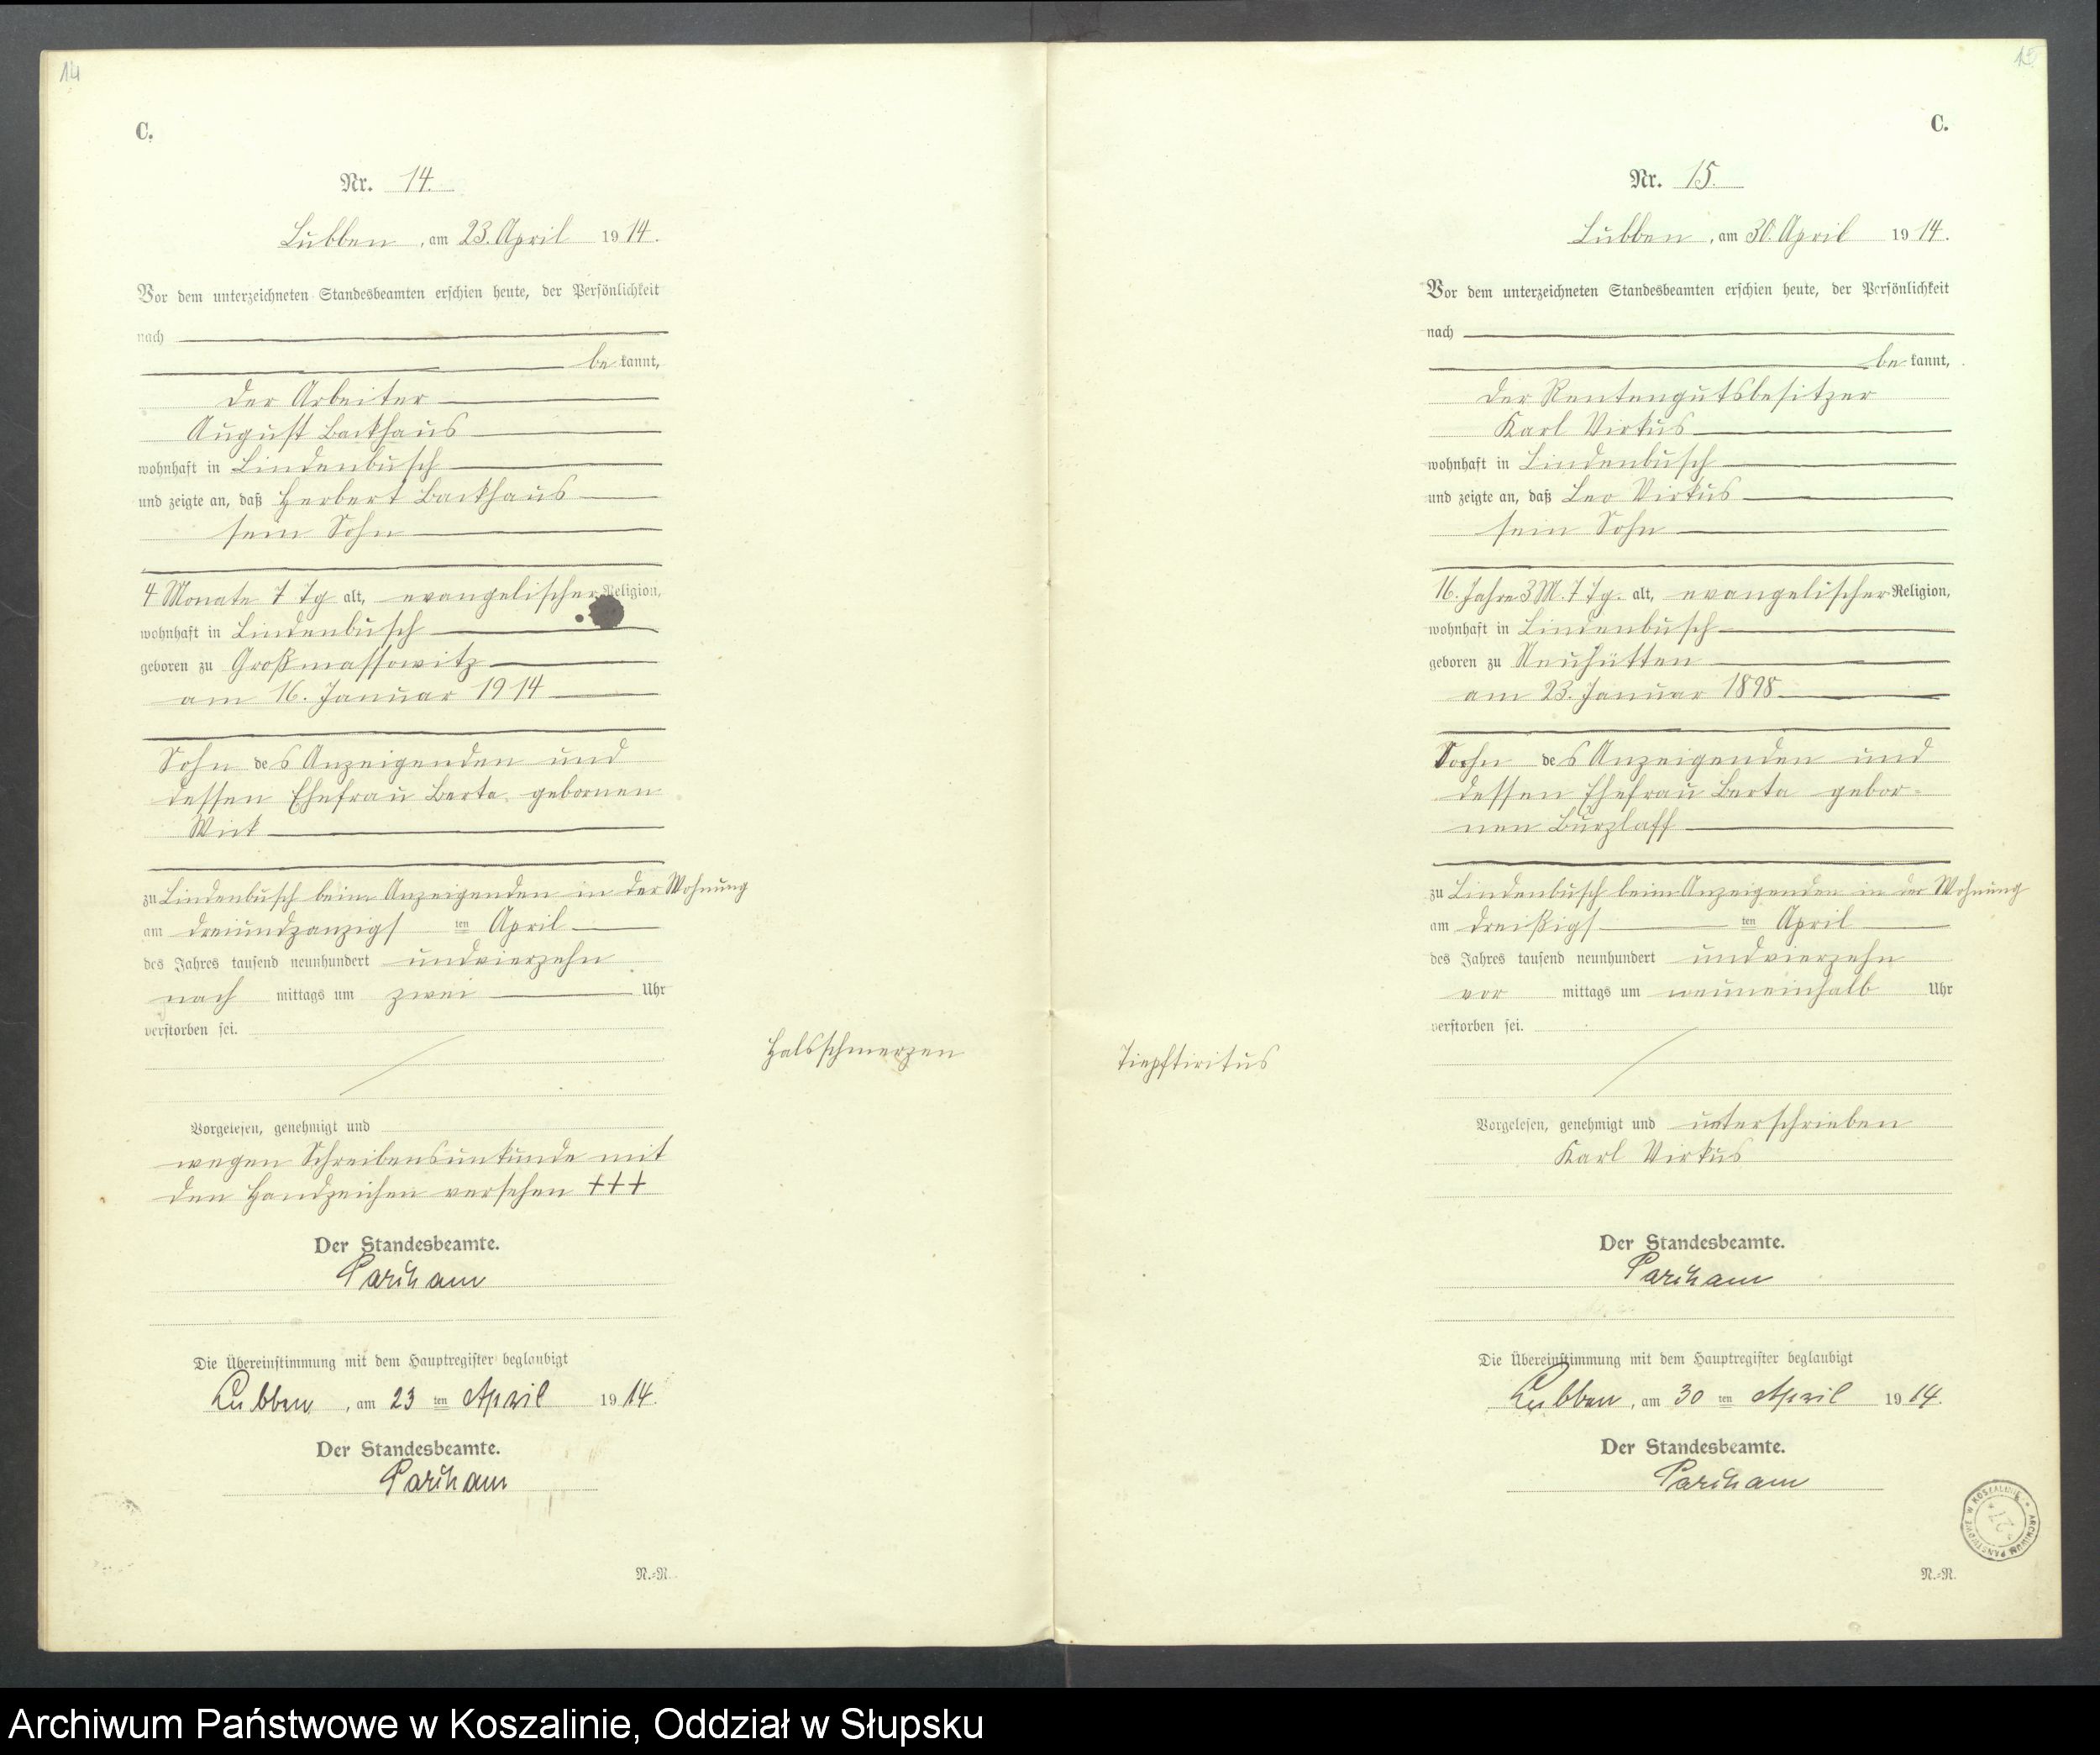 14
C.
Nr. 14.
Lubben, am 23. April 1914.
Vor dem unterzeichneten Standesbeamten erschien heute, der Persönlichkeit
nach
be kannt,
der Arbeiter
August Backhaus
wohnhaft in Lindenbusch
und zeigte an, daß Herbert Backhaus
sein Sohn
4 Monate 7 Tg alt, evangelischer Religion,
wohnhaft in Lindenbusch
geboren zu Großmassowitz
am 16. Januar 1914
Sohn des Anzeigenden und
dessen Ehefrau Berta gebornen
Wick
zu Lindenbusch beim Anzeigenden in der Wohnung
am dreiundzanzigs ten April
des Jahres tausend neunhundert undvierzehn
nach mittags um zwei Uhr
verstorben sei.
Halsschmerzen
Vorgelesen, genehmigt und
wegen Schreibensunkunde mit
den Handzeichen versehen +++
Der Standesbeamte.
Die Übereinstimmung mit dem Hauptregister beglaubigt
Lubben, am 23 ten April 1914.
Der Standesbeamte.
N.=N.
15
C.
Nr. 15.
Lubben, am 30. April 1914.
Vor dem unterzeichneten Standesbeamten erschien heute, der Persönlichkeit
nach
be kannt,
der Rentengutsbesitzer
Karl Virkus
wohnhaft in Lindenbusch
und zeigte an, daß Leo Virkus
sein Sohn
16. Jahre 3 M. 7 Tg. alt, evangelischer Religion,
wohnhaft in Lindenbusch
geboren zu Neuhütten
am 23. Januar 1898
Soohn des Anzeigenden und
dessen Ehefrau Berta gebor-
nen Burzlaff
zu Lindenbusch beim Anzeigenden in der Wohnung
am dreißigs ten April
des Jahres tausend neunhundert undvierzehn
vor mittags um neuneinhalb Uhr
verstorben sei.
Tiepftiritus
Vorgelesen, genehmigt und unterschrieben
Karl Virkus
Der Standesbeamte.
Die Übereinstimmung mit dem Hauptregister beglaubigt
Lubben, am 30 ten April 1914.
Der Standesbeamte.
ARCHIWUM PAŃSTWOWE W KOSZALINIE
N.=N.
Archiwum Państwowe w Koszalinie, Oddział w Słupsku